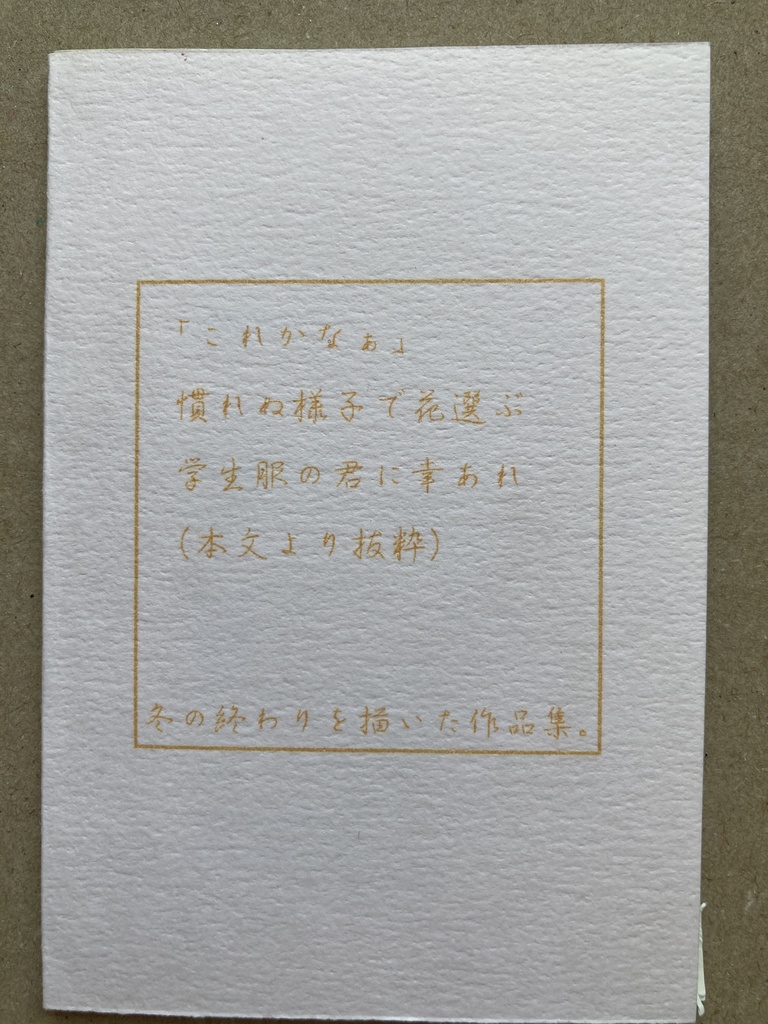 「これかなぁ」
慣れぬ様子で花選ぶ
学生服の君に幸あれ
(本文より抜粋)
冬の終わりを描いた作品集。